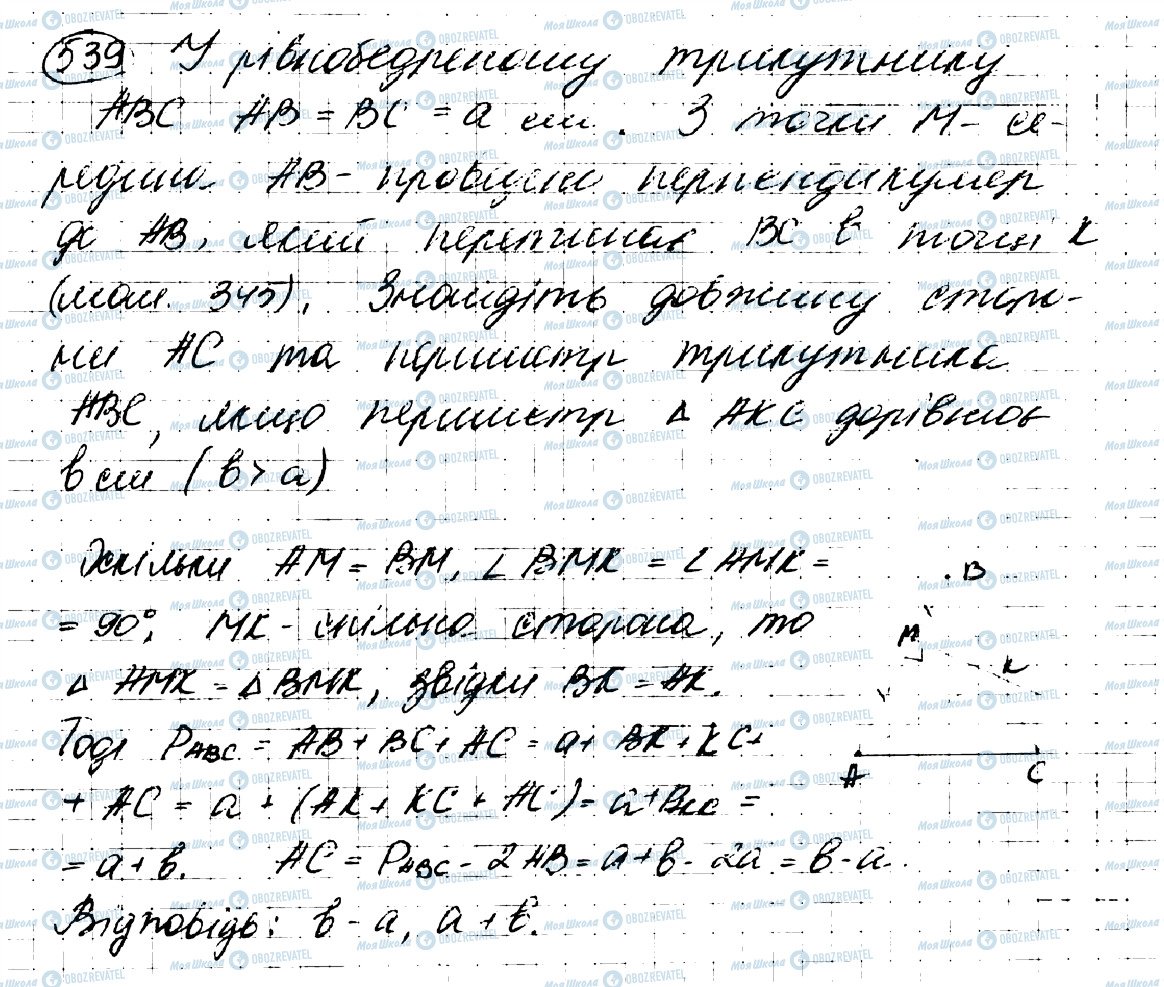 539 У рівнобедреному трикутнику
ABC AB = BC = a см. З точки M – се-
редина AB – проведено перпендикуляр
до AB, який перетинає BC в точці K
(мал. 345). Знайдіть довжину сторо-
ни AC та периметр трикутника
ABC, якщо периметр △ AKC дорівнює
b см (b > a)
Оскільки AM = BM, ∠ BMK = ∠ AMK =
= 90°, MK - спільна сторона, то
△ AMK = △ BMK, звідки BK = AK.
Тоді P ABC = AB + BC + AC = a + BK + KC +
+ AC = a + (AK + KC + AC) = a +
= a + b. AC = P ABC - 2 AB = a + b - 2a = b - a.
Відповідь: b - a, a + b.
B
M
K
A
C